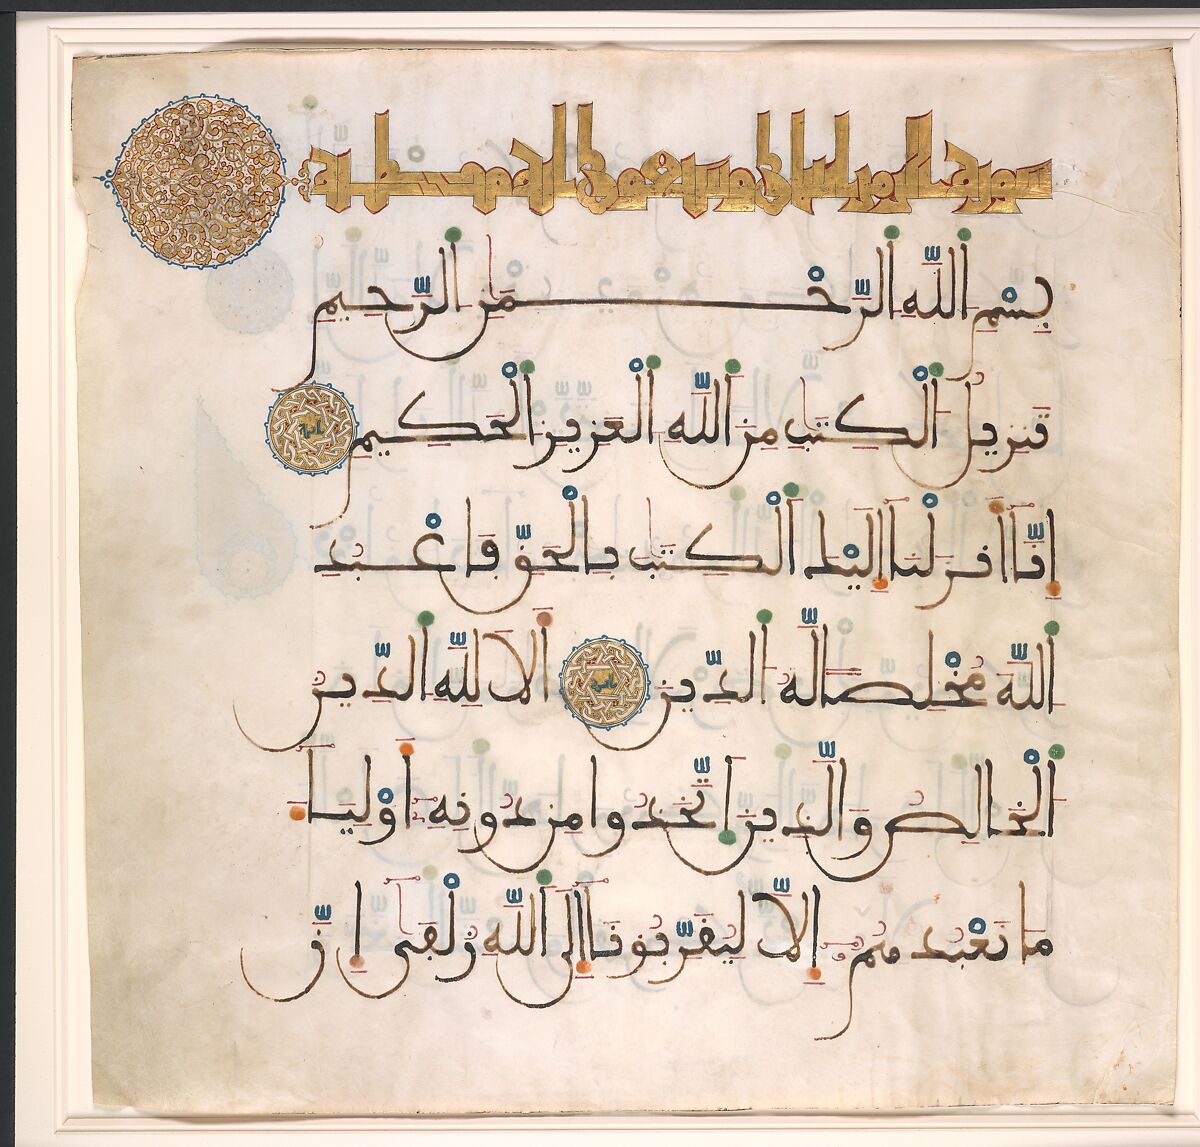 سورة الزمر وسبعون
بسم الله الرحمن الرحيم
تنزيل الكتب من الله العزيز الحكيم
إنا أنزلنا إليك الكتب بالحق فاعبد
الله مخلصا له الدين ألا لله الدين
الخالص والذين اتخذوا من دونه أولياء
ما نعبدهم إلا ليقربونا إلى الله زلفى إن